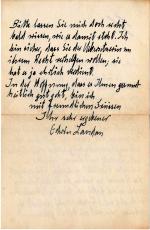 Bitte lassen Sie mich doch recht
bald wissen, wie es damit steht. Ich
bin sicher, dass Sie der
ihrem Recht verhelfen wollen; sie
hat es ja ehrlich verdient.
In der Hoffnung, dass es Ihnen gesund-
heitlich gut geht, bin ich
mit freundlichen Grüssen
Ihr sehr ergebener
Edwin Landau